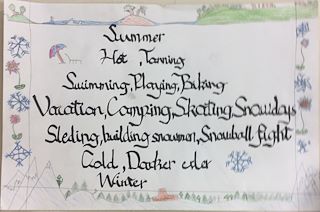 Summer
Hot, Tanning
Swimming, Playing, Biking
Vacation, Camping, Skating, Snowdays
Sleding, building snowmen, Snowball fight
Cold, Darker
Winter